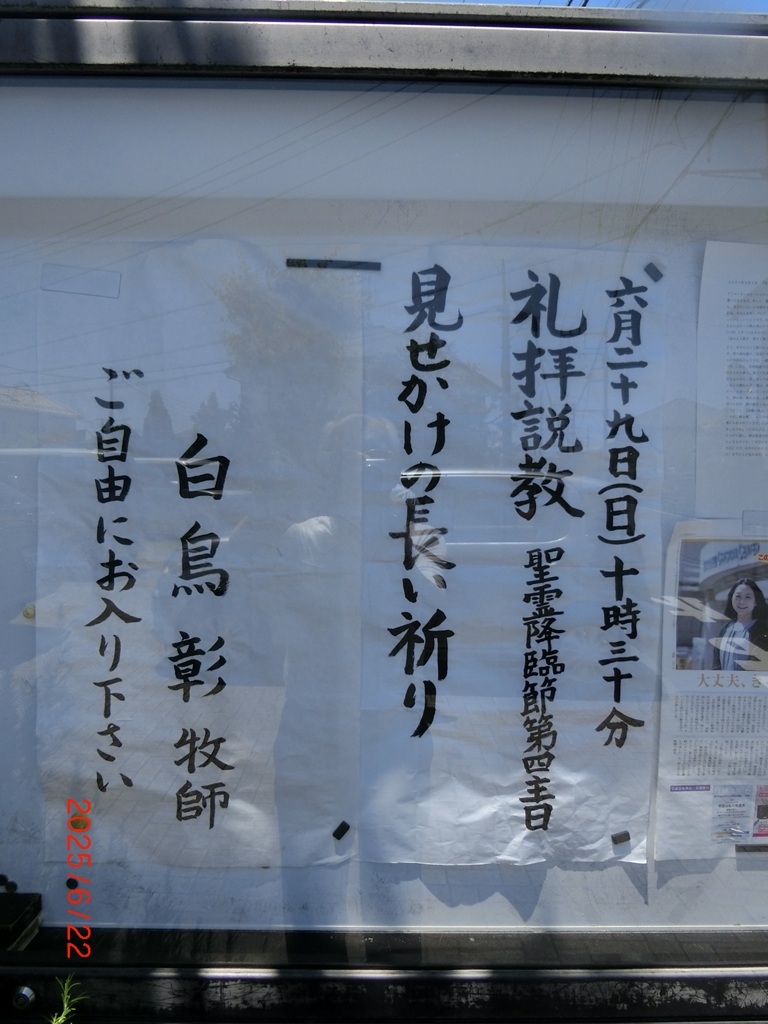 六月二十九日(日)十時三十分
礼拝説教 聖霊降臨節第四主日
見せかけの長い祈り
白鳥彰牧師
ご自由にお入り下さい
大丈夫、き
2025/6/22